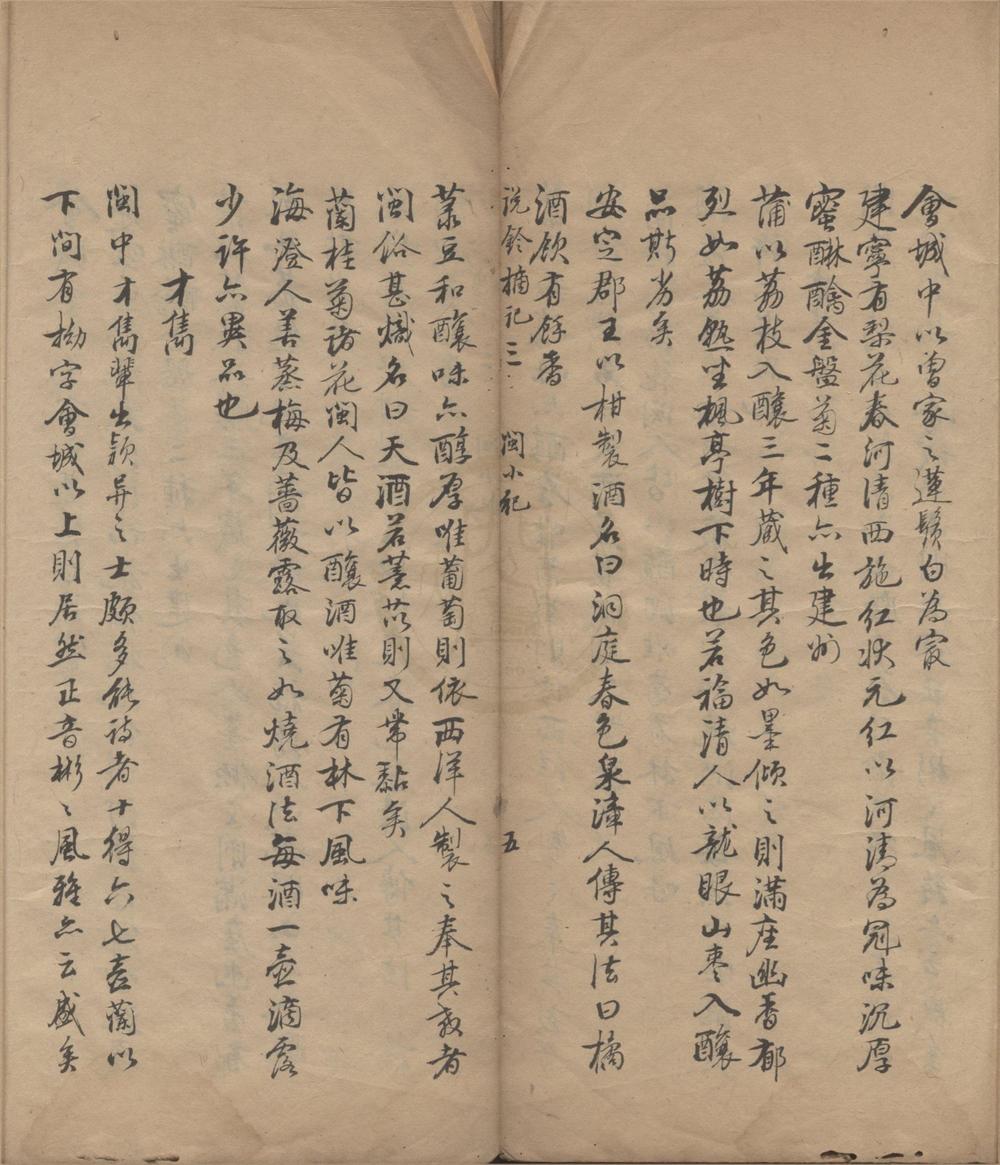 會城中以曾家之蓮鬚白為最
建寧有梨花春河清西施紅狀元紅以河清為冠味沉厚
蜜酥醽金盤菊二種亦出建州
蒲以荔枝入釀三年蔵之其色如墨傾之則滿座幽香郁
烈如荔熟坐楓亭樹下時也若福清人以龍眼山枣入釀
品斯劣矣
安定郡王以柑製酒名曰洞庭春色泉漳人傳其法曰橘
酒飲有餘香
说鈴摘记三 閩小紀 五
菉豆和釀味亦醇厚唯葡萄則依西洋人製之奉其教者
閩俗甚熾名曰天酒若薏苡則又帶黏矣
蘭桂菊諸花閩人皆以釀酒唯菊有林下風味
海澄人善蒸梅及薔薇露取之如燒酒法每酒一壺滴露
少许亦異品也
才雋
閩中才雋輩出颖异之士頗多能诗者十得六七壺蘭以
下间有拗字會城以上則居然正音彬〻風雅亦云盛矣